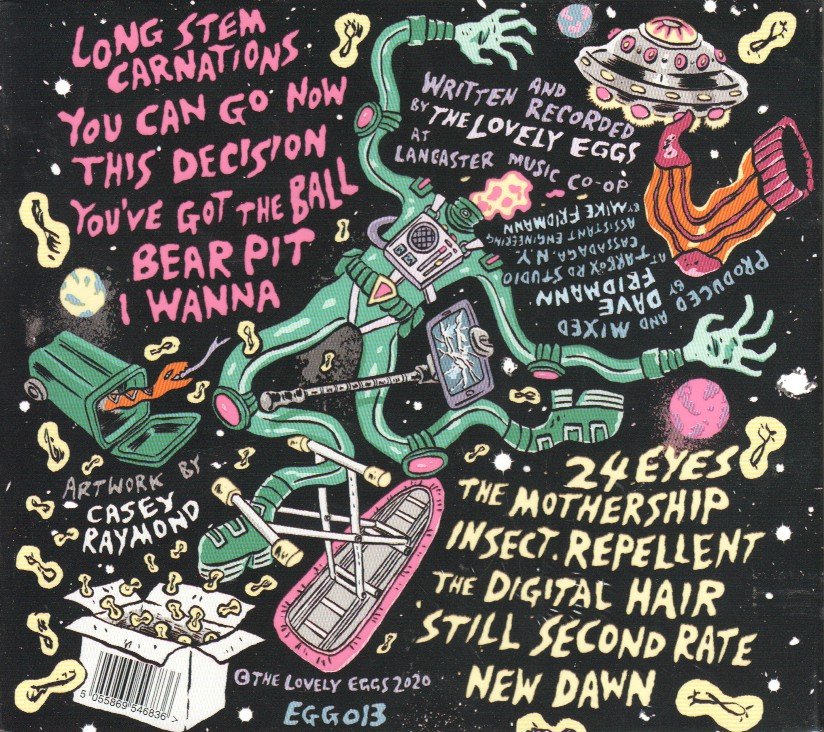 LONG STEM
CARNATIONS
YOU CAN GO NOW
THIS DECISION
YOU'VE GOT THE BALL
BEAR PIT
I WANNA
WRITTEN AND
RECORDED
BY THE LOVELY EGGS
AT
LANCASTER MUSIC CO-OP
PRODUCED AND MIXED
BY DAVE
FRIDMANN
AT TARBOX RD STUDIO
CASSADAGA, N.Y.
ASSISTANT ENGINEERING
BY MIKE FRIDMANN
ARTWORK BY
CASEY
RAYMOND
24 EYES
THE MOTHERSHIP
INSECT. REPELLENT
THE DIGITAL HAIR
STILL SECOND RATE
NEW DAWN
© THE LOVELY EGGS 2020
EGG013
5 055869 546836 >